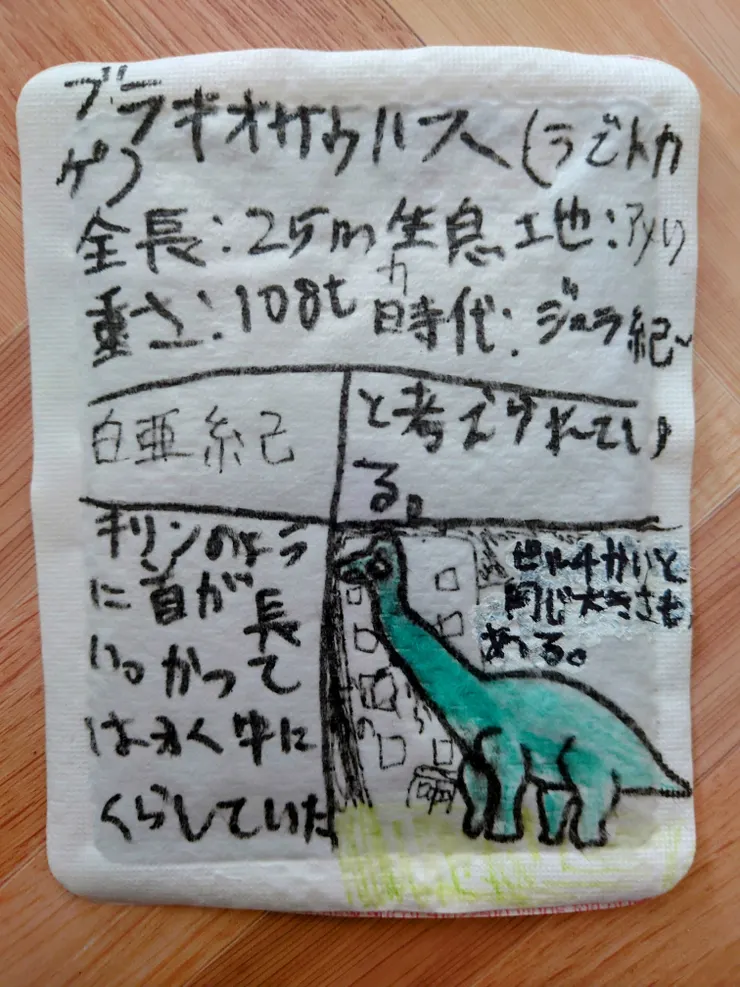 ブラキオサウルス(うでトカ
ゲ)
全長:25m 生息地:アメリ
カ
重さ:108t 時代:ジュラ紀~
白亜紀
と考えられてい
る。
キリンのよう
に首が長
い。かつて
は 水中に
くらしていた
ビル4かいと
同じ大きさも
ある。